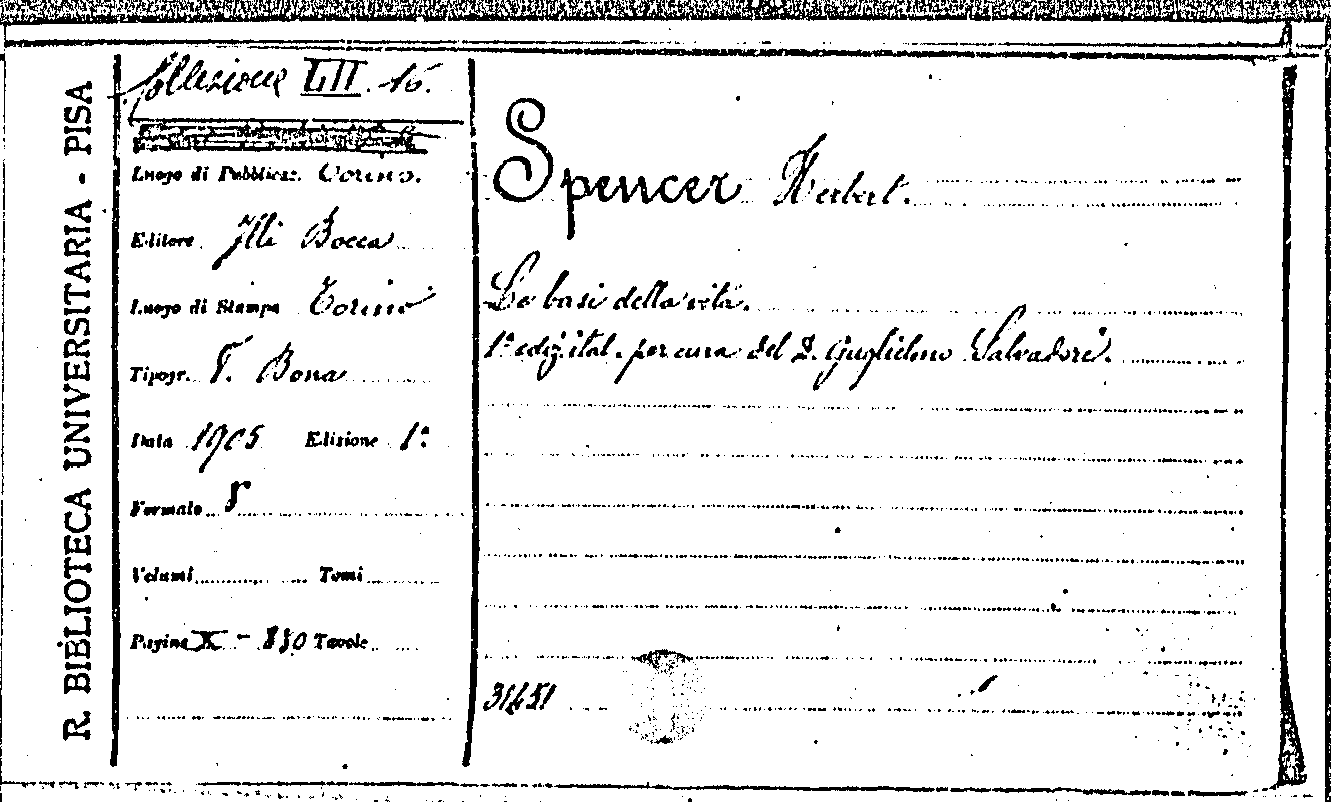 R. BIBLIOTECA UNIVERSITARIA - PISA
Collezione LII. 16.
Luogo di Pubblicaz. Torino.
Editore Flli Bocca
Luogo di Stampa Torino
Tipogr. V. Bona
Data 1905 Edizione 1ª
Formato 8
Volumi Tomi
Pagine X - Tavole
Spencer Herbert.
Le basi della vita.
1ª ediz. ital. per cura del D. Guglielmo Salvadori.
31451